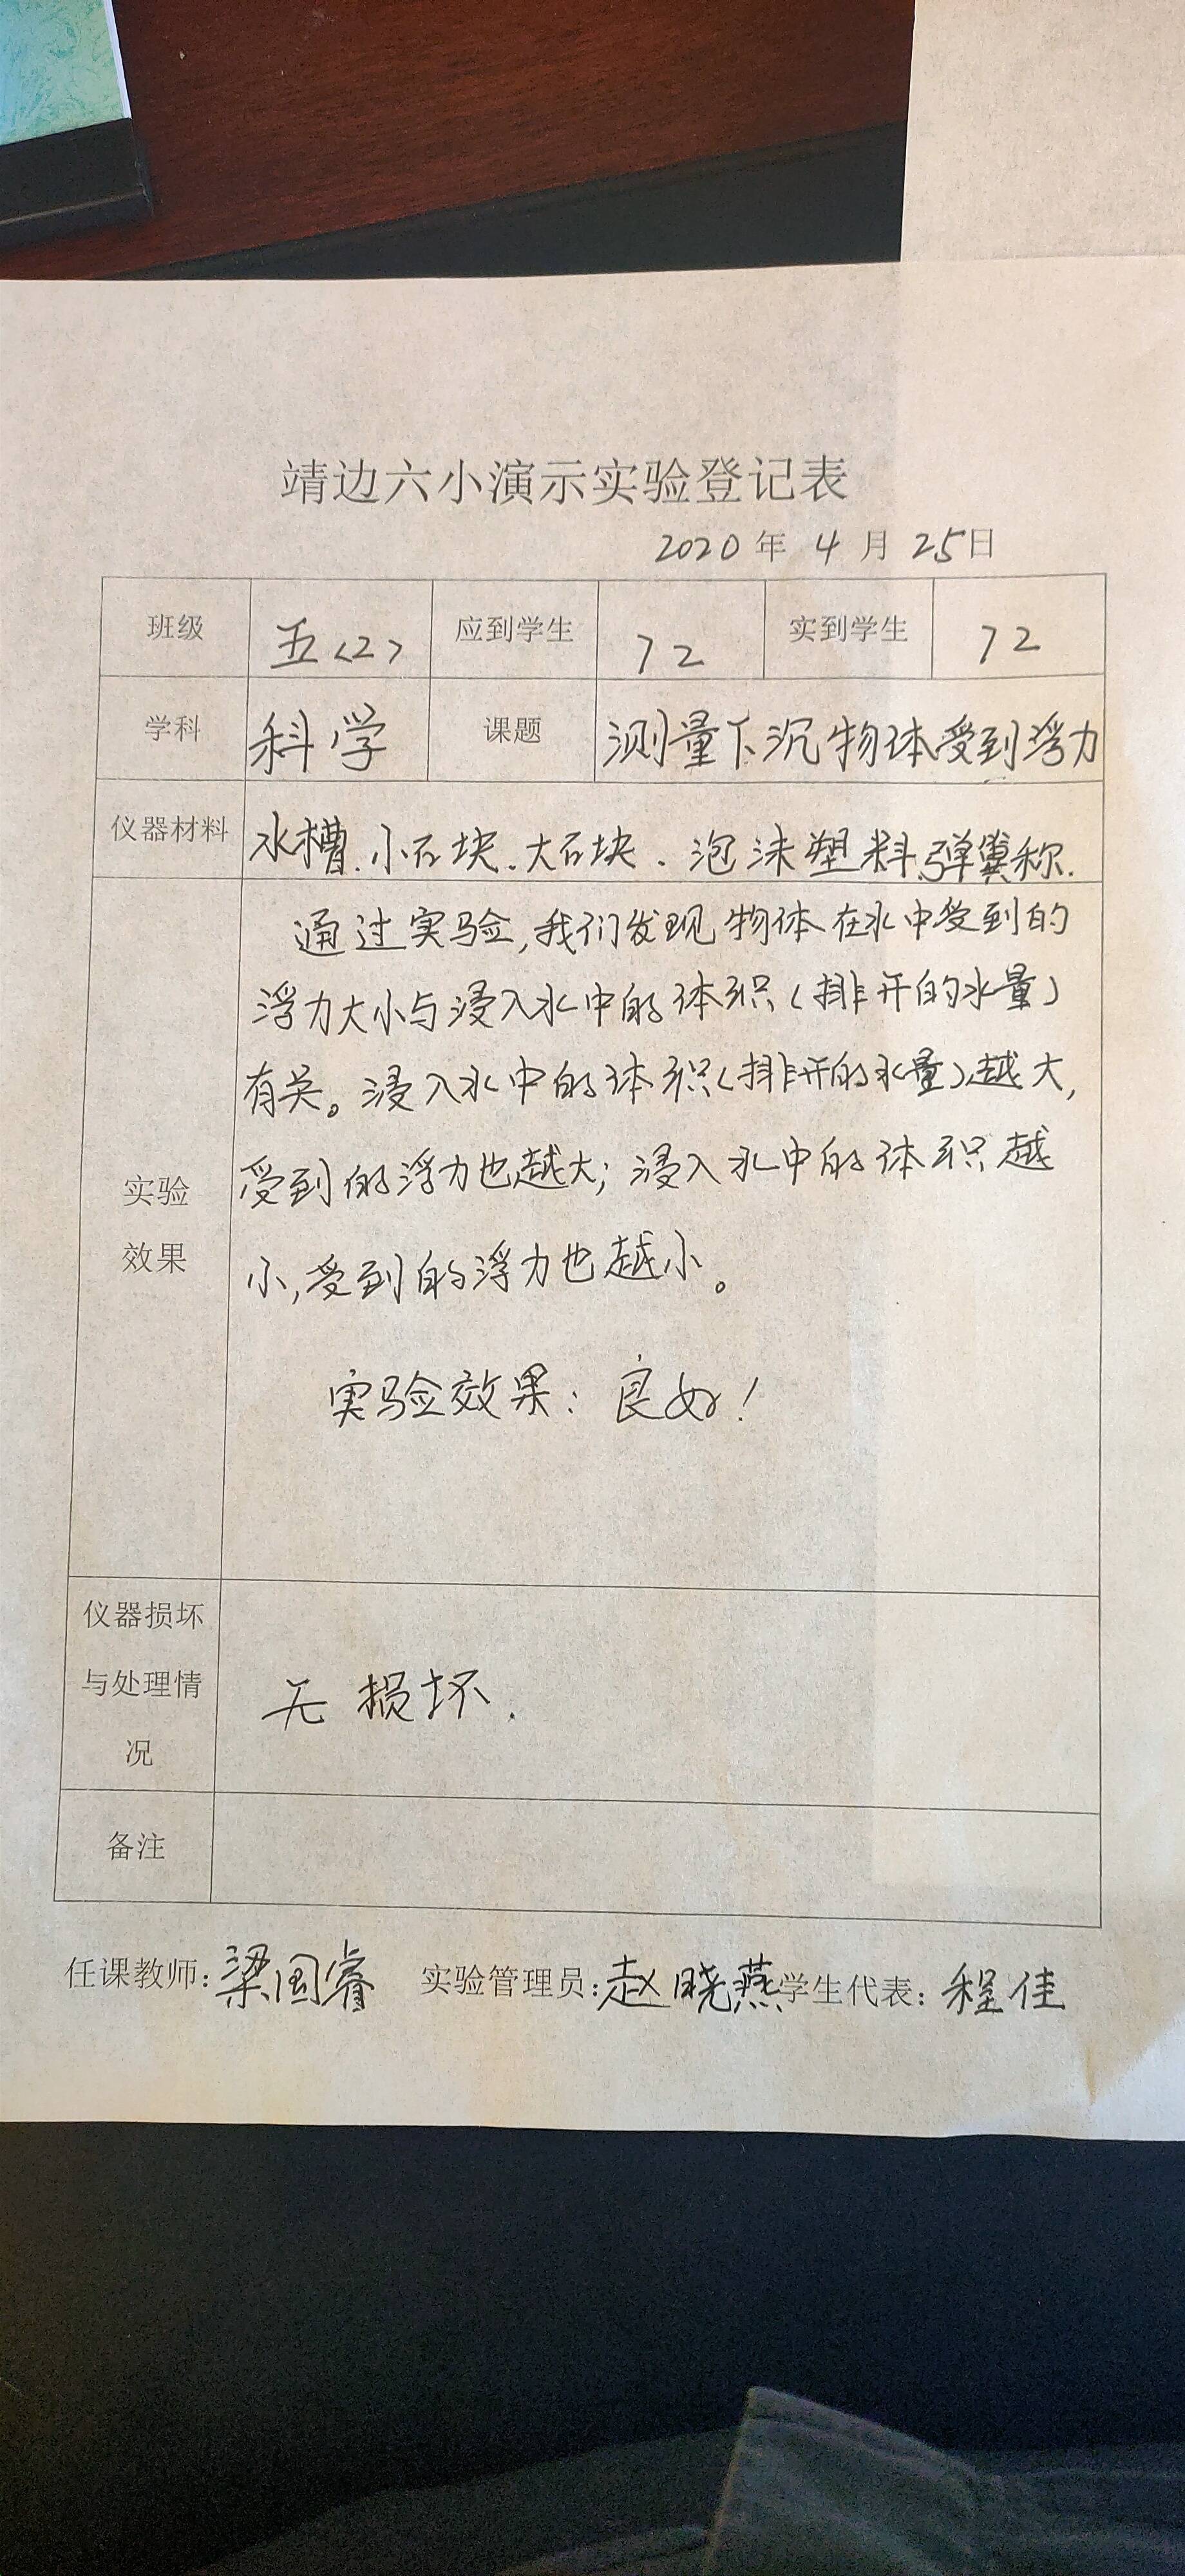 靖边六小演示实验登记表
2020年4月25日
班级 五<2> 应到学生 72 实到学生 72
学科 科学 课题 测量下沉物体受到浮力
仪器材料 水槽.小石块.大石块.泡沫塑料.弹簧称.
通过实验,我们发现物体在水中受到的
浮力大小与浸入水中的体积(排开的水量)
有关。浸入水中的体积(排开的水量)越大,
受到的浮力也越大;浸入水中的体积越
实验
效果
小,受到的浮力也越小。
实验效果:良好!
仪器损坏
与处理情
况
无损坏.
备注
任课教师:梁国睿 实验管理员:赵晓燕 学生代表:程佳